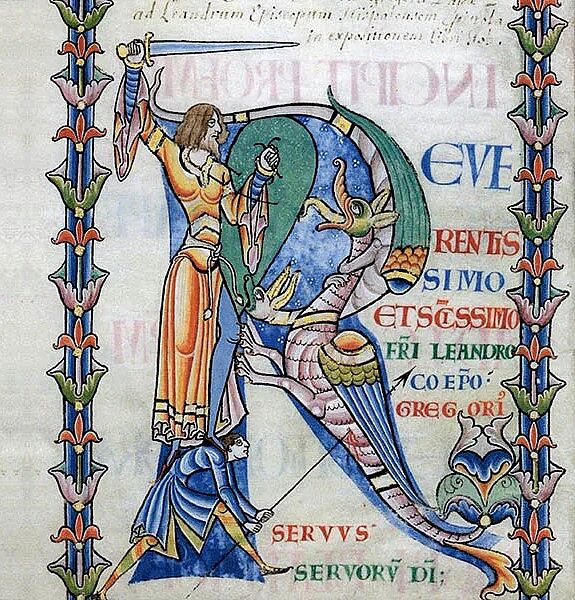 ad Leandrum Episcopum Hispalensem Epistola
in expositionem libri Iob.
REVE
RENTIS
SIMO
ET SC̄ISSIMO
FRĪ LEANDRO
COEPŌ·
GREGORI'
SERVUS
SERVORŪ DĪ;